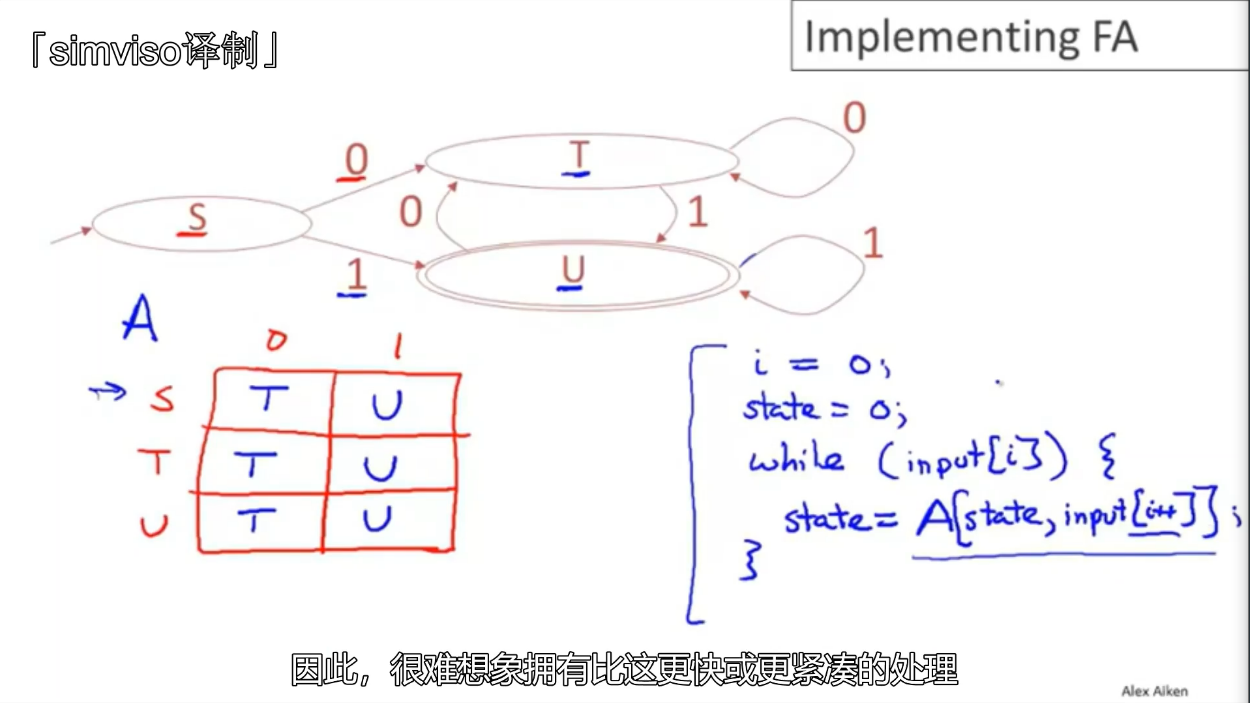 「simviso译制」
Implementing FA
0
0
T
S
0
1
1
1
U
A
0 1
S T U
T T U
U T U
i = 0;
state = 0;
while (input[i]) {
state = A[state, input[i++]];
}
因此，很难想象拥有比这更快或更紧凑的处理
Alex Aiken